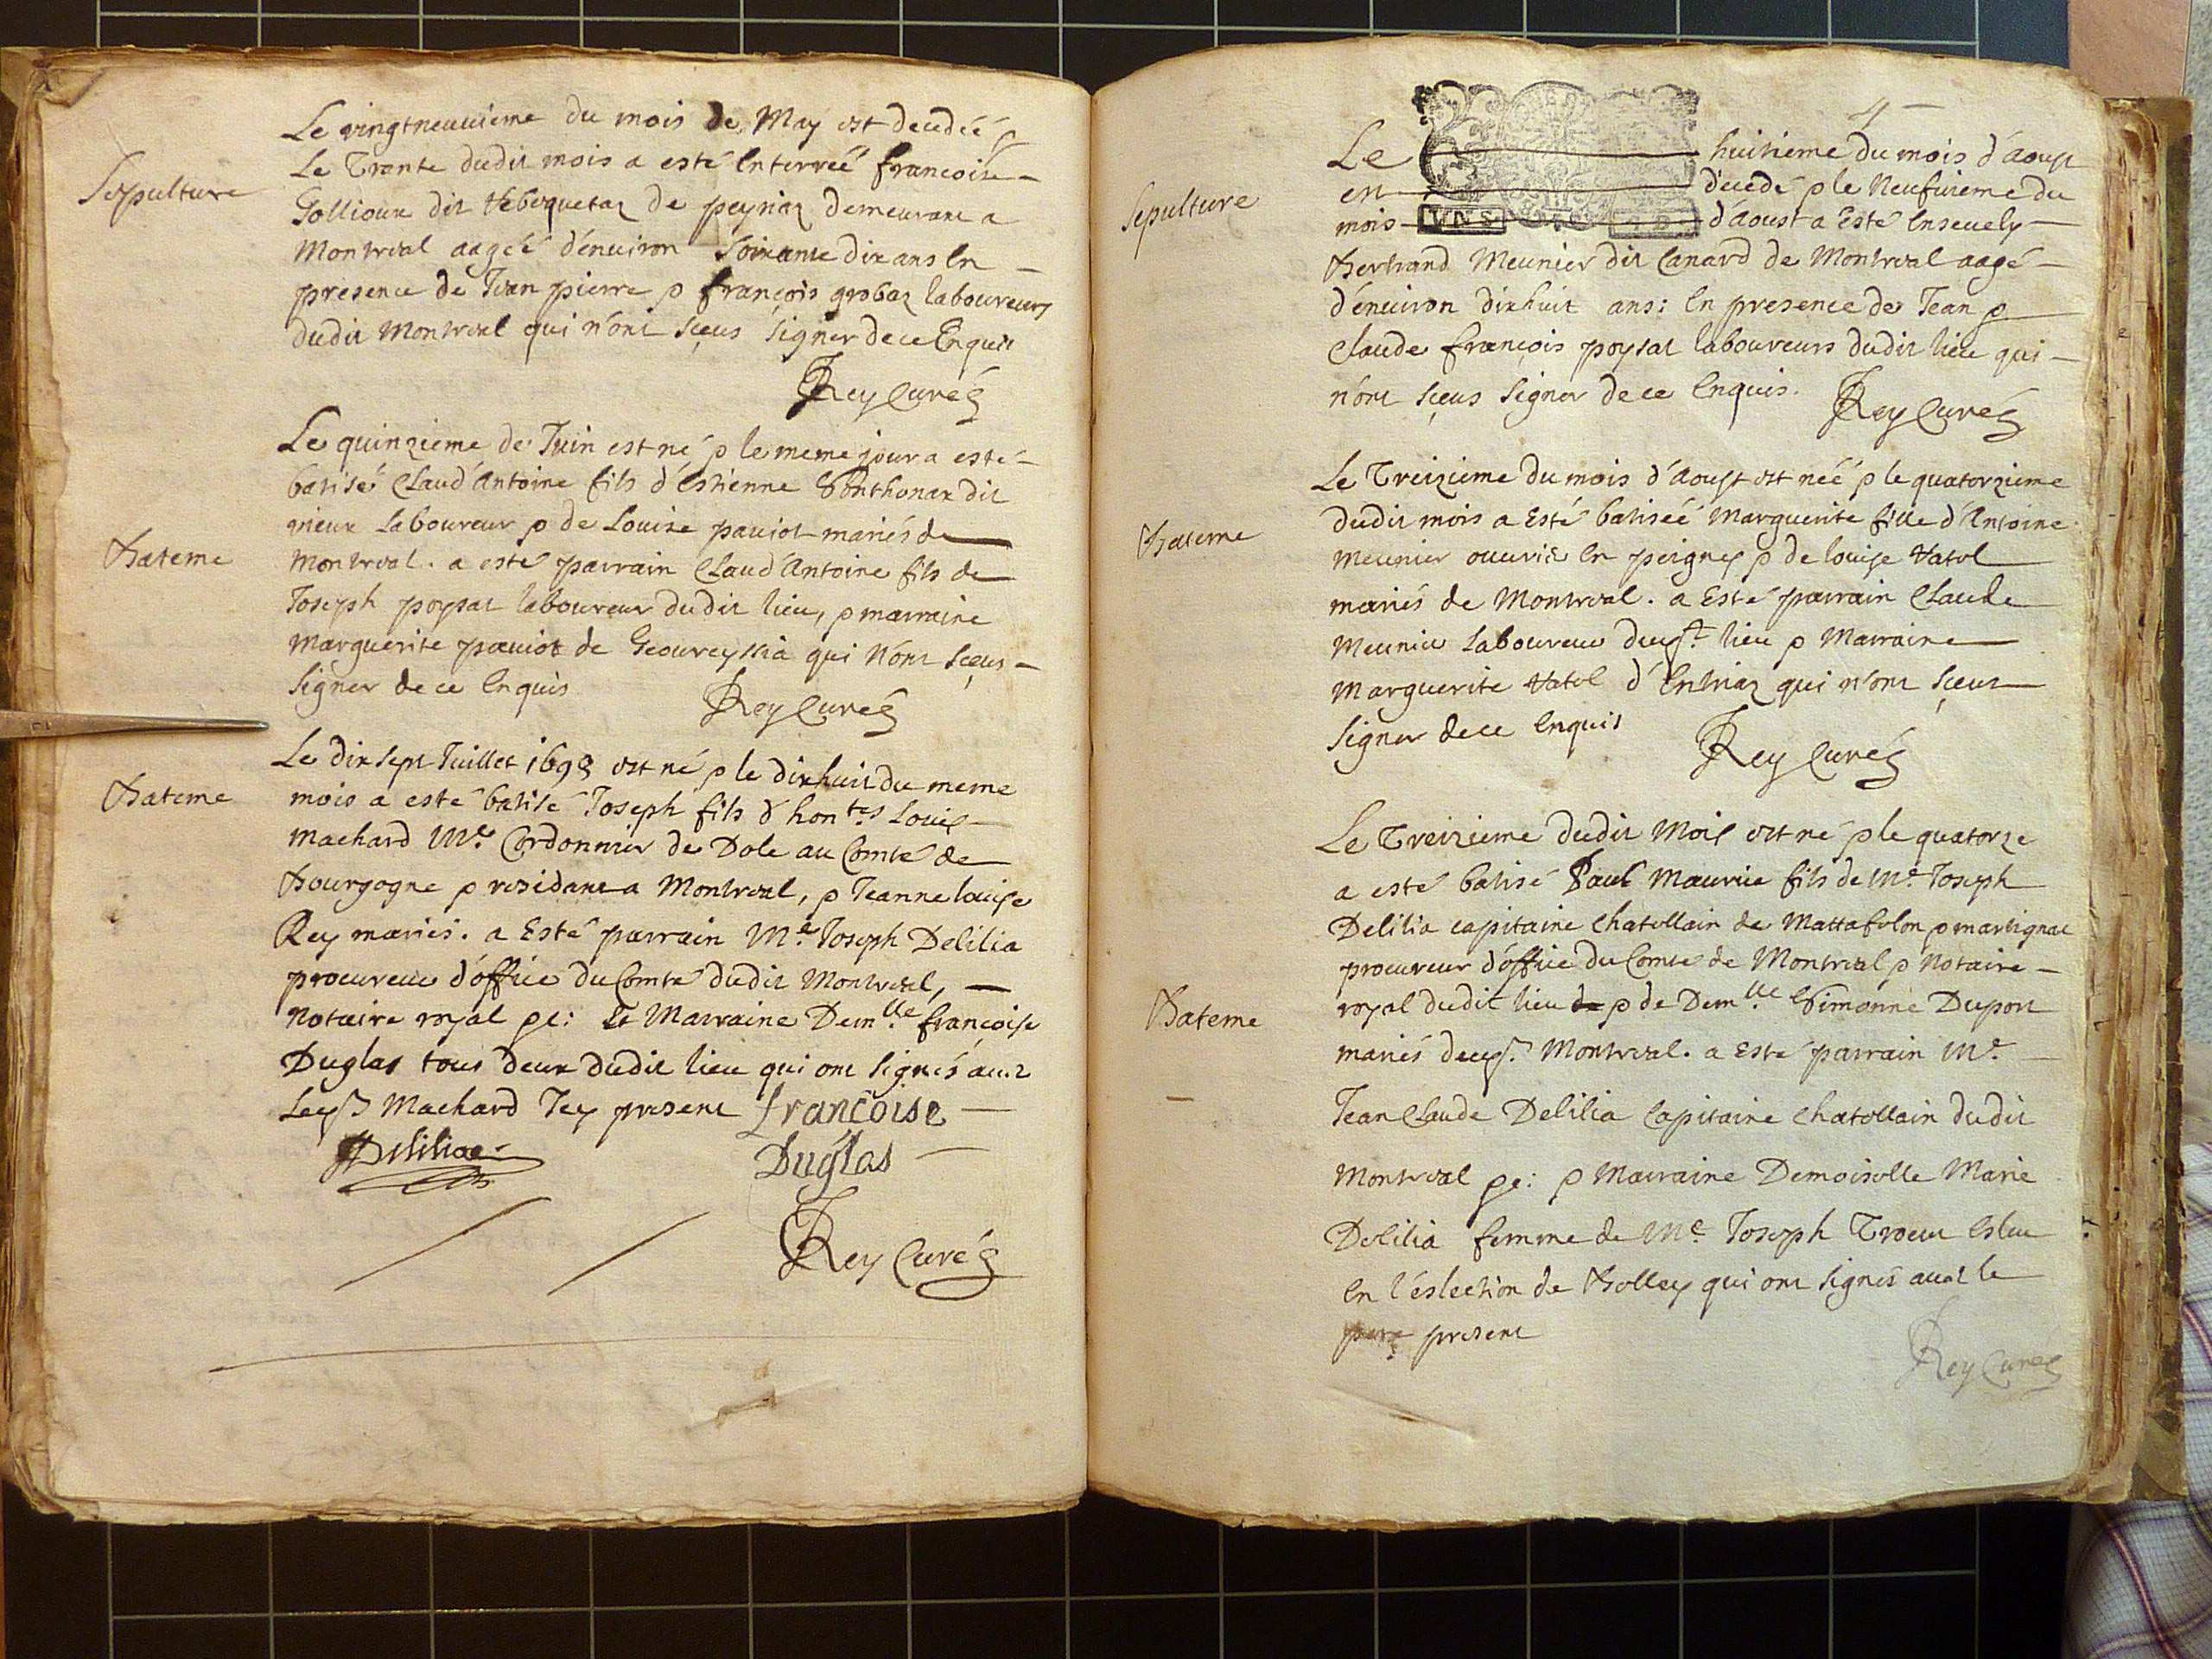 Sepulture
Le vingtneuuieme du mois de May est decedéé &
Le Trante dudit mois a esté Enterréé francoise
Gollioux dit de peyriaz demeurant a
Montreal aagéé d'enuiron Soixante dix ans En
presence de Jean pierre & françois grobaz laboureurs
dudit Montreal qui n'ont sceus signer de ce Enquis
Rey Curé
Bateme
Le quinzieme de Juin est né & le meme jour a esté
batisé Claud'Antoine fils d'Estienne Ponthonax dit
vieux Laboureur & de Louise pauiot mariés de
Montreal. a esté parrain Claud'Antoine fils de
Joseph poysat laboureur dudit lieu, & marraine
Marguerite pauiot de Geoureyssia qui n'ont sceus
signer de ce Enquis
Rey Curé
Bateme
Le dix sept Juillet 1698 est né & le dixhuit du meme
mois a esté batisé Joseph fils d'hon.tes Louis
Machard M.e Cordonnier de Dole au Comté de
Bourgogne & residant a Montreal, & Jeanne louise
Rey mariés. a Esté parrain M.e Joseph Delilia
procureur d'office du Comté dudit Montreal,
Notaire royal ge: Et Marraine Dem.lle françoise
Duglas tous deux dudit lieu qui ont signés auec
Machard Icy present françoise
Delilia Duglas
Rey Curé
4
Sepulture
Le huitieme du mois d'Aoust
en decedé & le Neufuieme du
mois d'aoust a Esté Enseuely
Bertrand Meunier dit Canard de Montreal aagé
d'enuiron dixhuit ans: En presence de Jean &
Claude françois poysat laboureurs dudit lieu qui
n'ont sceus signer de ce Enquis.
Rey Curé
Bateme
Le Treizieme du mois d'Aoust est néé & le quatorzieme
dudit mois a Esté batiséé Marguerite fille d'Antoine
Meunier ouurie En peignes & de louise Vatel
mariés de Montreal. a Esté parrain Claude
Meunier Laboureur lieu & Marraine
Marguerite Vatel d'Entriaz qui n'ont sceus
signer de ce Enquis
Rey Curé
Bateme
Le Treizieme dudit Mois est né & le quatorze
a esté batisé Paul Maurice fils de M.e Joseph
Delilia capitaine chatellain de Mattafelon & martignat
procureur d'office du Comté de Montreal & Notaire
royal dudit lieu & de Dem.lle Simonne Dupont
mariés Montreal. a Esté parrain M.e
Jean Claude Delilia Capitaine chatellain dudit
Montreal ge: & Marraine Demoiselle Marie
Delilia femme de M.e Joseph Eslu
En l'eslection de Belley qui ont signés auec le
pere present
Rey Curé